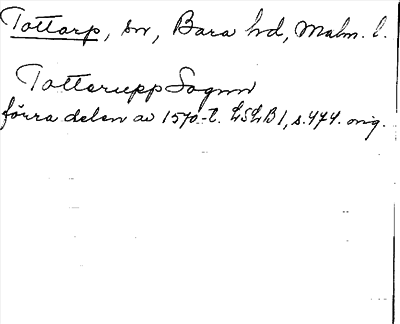 Tottarp, sn, Bara hd, Malm. l.
Tottarupp Sognn
förra delen av 1570-t. LSLB 1, s. 474. orig.